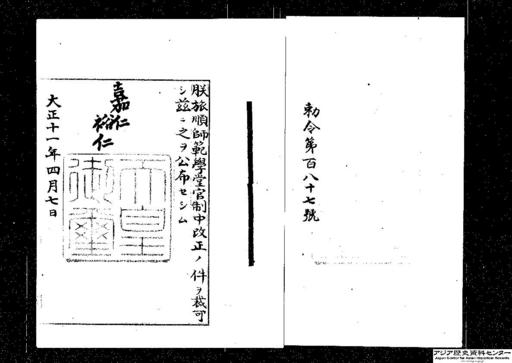 勅令第百八十七號
朕旅順師範學堂官制中改正ノ件ヲ裁可
シ茲ニ之ヲ公布セシム
嘉仁
裕仁
天皇御璽
大正十一年四月七日
アジア歴史資料センター
Japan Center for Asian Historical Records